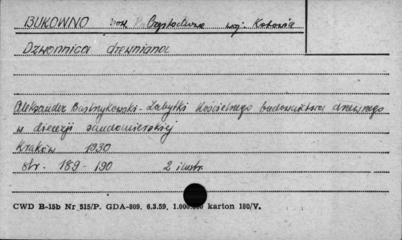 BUKOWNO woj. Katowice
Dzwonnica drewniana
Aleksander Bastrzykowski - Zabytki kościelnego budownictwa drewnego
w diecezji sandomierskiej
Kraków 1930
str. 189 - 190 2 ilustr.
CWD B-15b Nr 515/P. GDA-809. 6.3.59, karton 180/V.